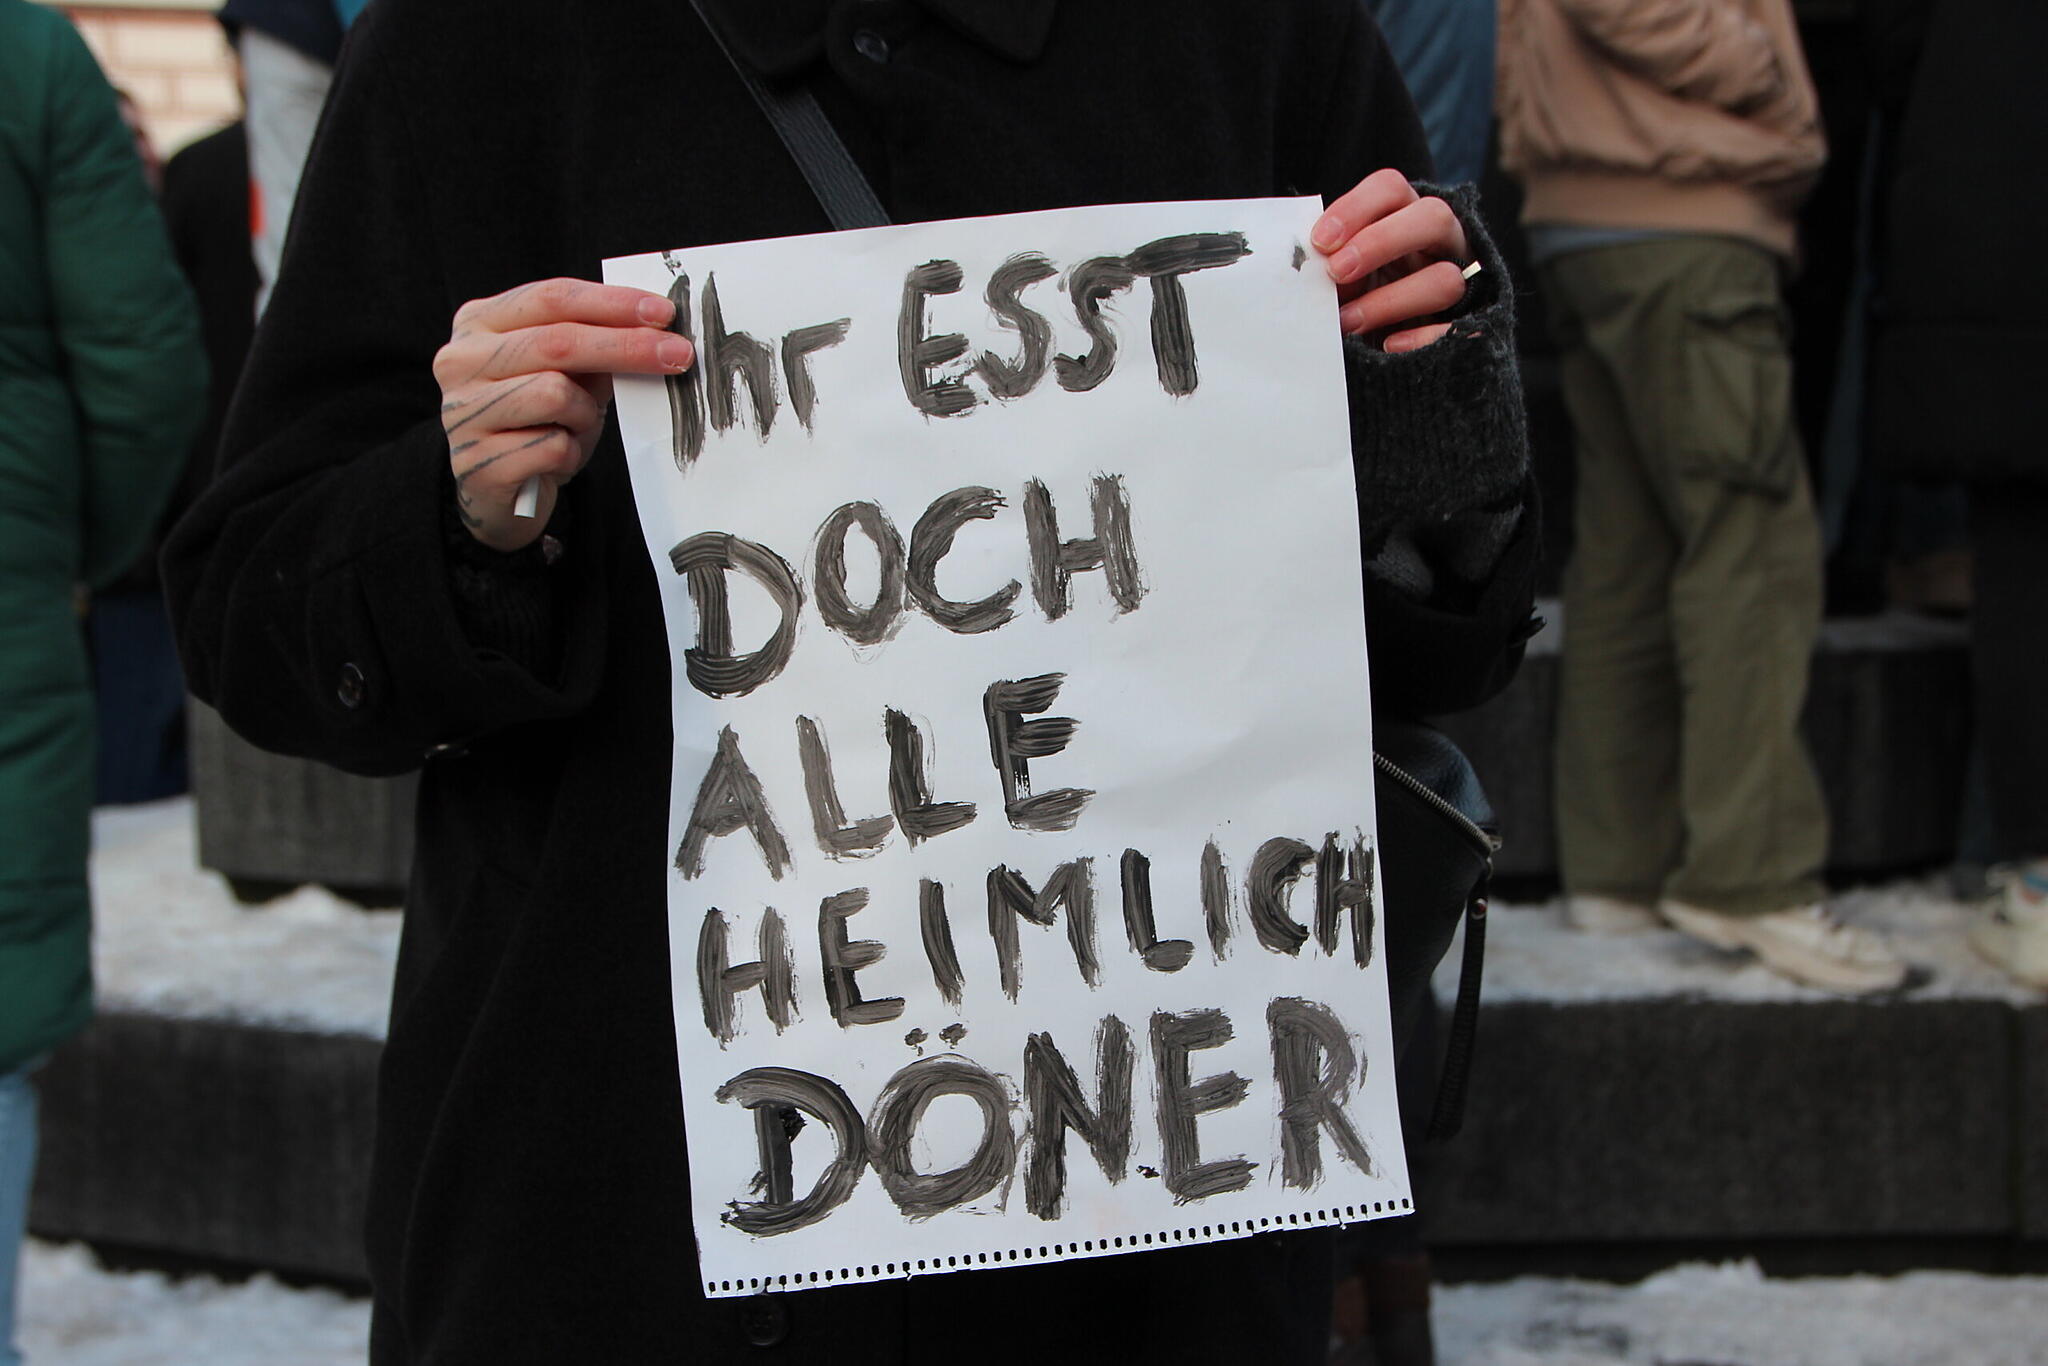 Ihr ESST
DOCH
ALLE
HEIMLICH
DÖNER